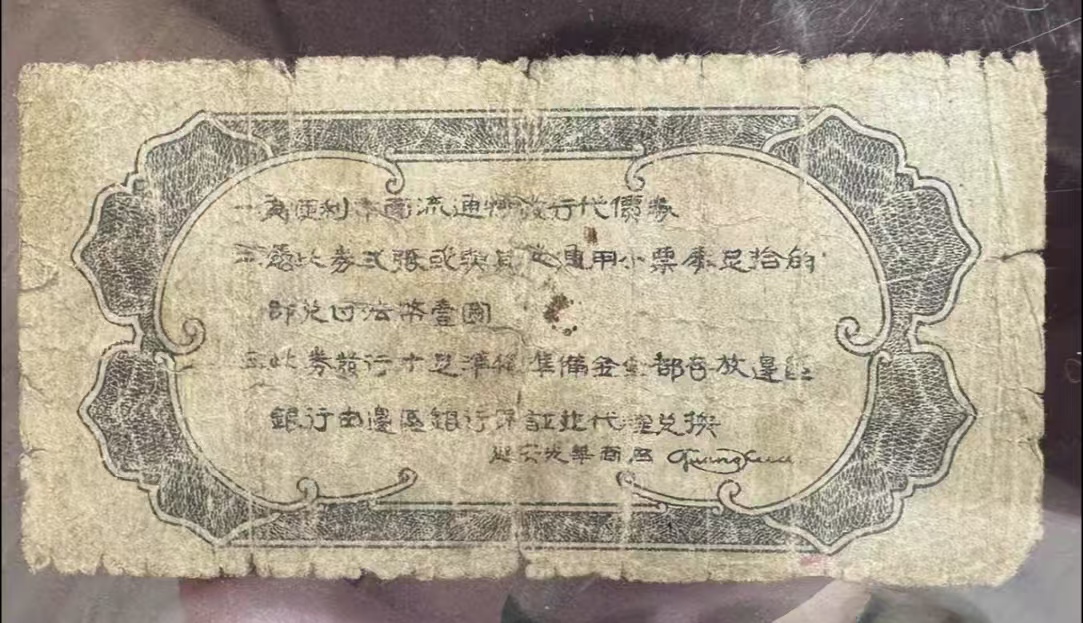 一為便利市面流通特發行代價券
二憑此券弍張或與其他通用小票湊足拾
即兌回法幣壹圓
三此券發行十足準備準備金全部存放邊區
銀行由邊區銀行保証並代理兌換
延安光華商店